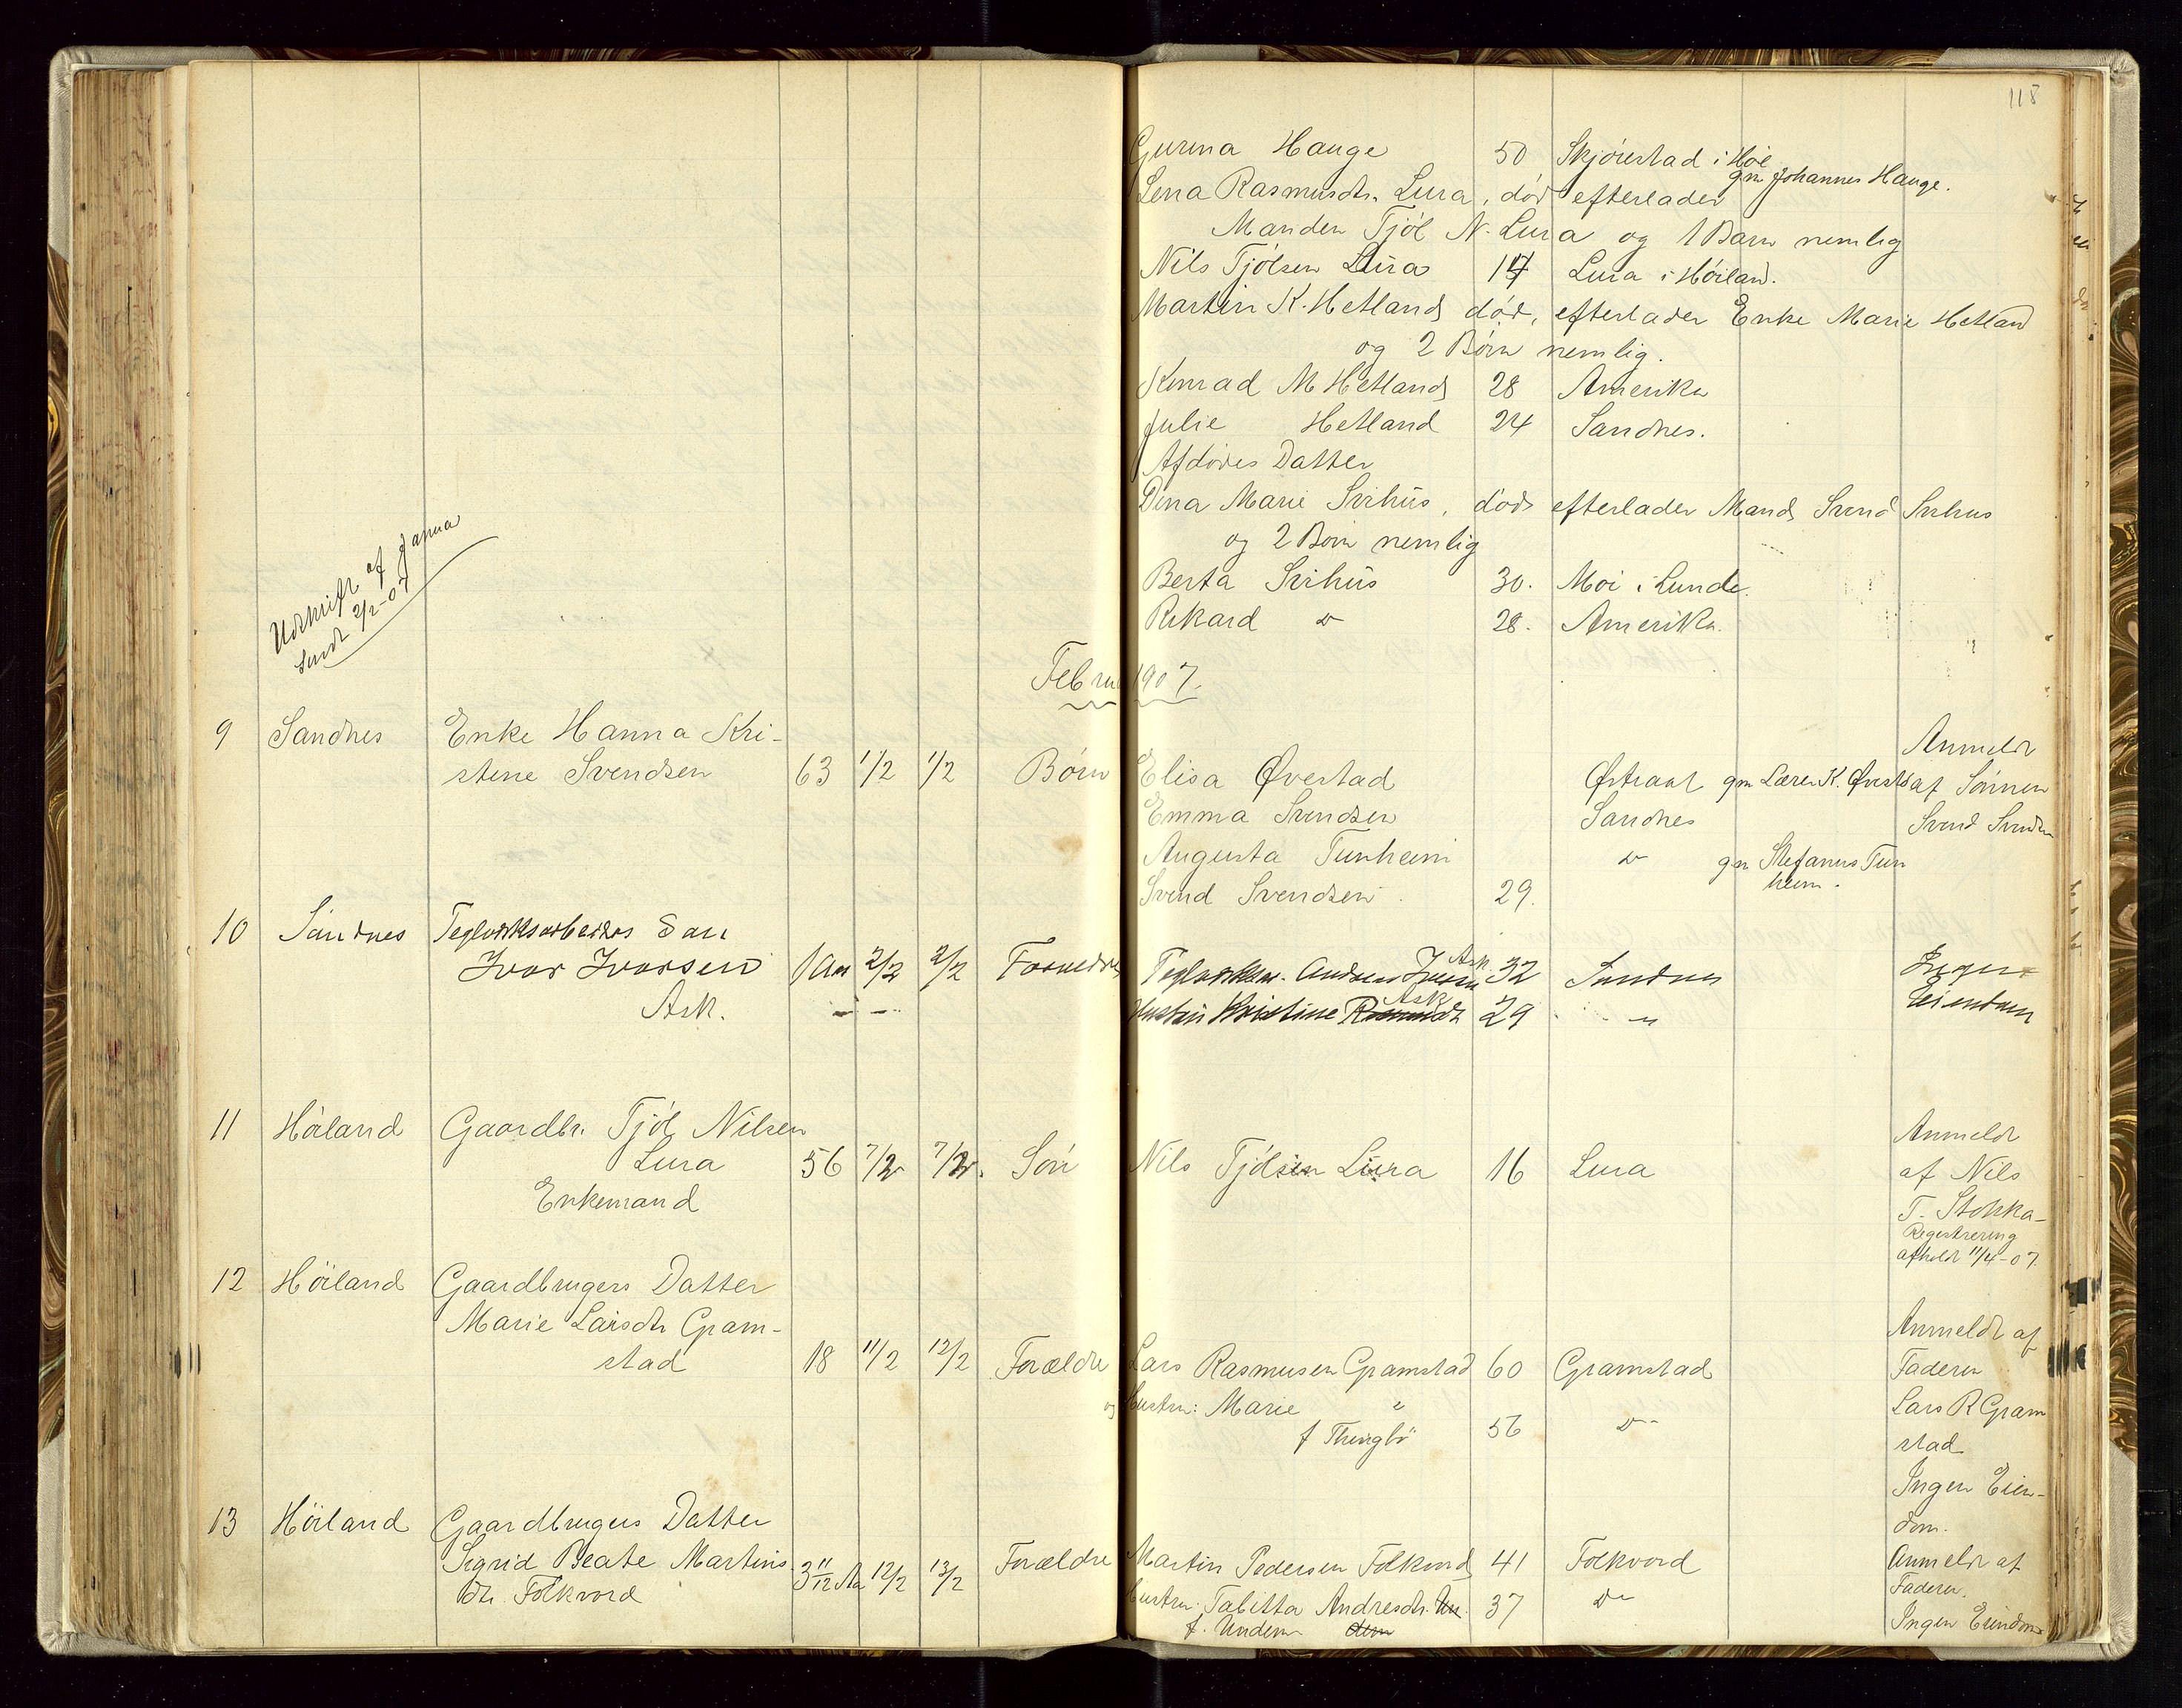 118
Gurina Hauge 50 Skjörestad i Höl. gm Johannes Hauge.
Lena Rasmusdtr. Lura, död efterlader
Manden Tjöl N. Lura og 1 Barn nemlig
Nils Tjölsen Lura 14 Lura i Höiland.
Martin K. Hetland död, efterlader Enke Marie Hetland
og 2 Börn nemlig.
Konrad M Hetland 28 Amerika
Julie Hetland 24 Sandnes.
Afdödes Datter
Dina Marie Svihus, död efterlader Mand Svend Svihus
og 2 Börn nemlig
Berta Svihus 30. Moi i Lunde.
Rikard do 28. Amerika.
Udskrift af Janua
sendt 2/2-07
Februar 1907.
9 Sandnes Enke Hanna Kri-
stine Svendsen 63 1/2 1/2 Börn Elisa Øvestad Østraat gm Lærer K. Øvestad Anmeldt
af Sönnen
Emma Svendsen Sandnes Svend Svendsen
Augusta Tunheim do gm Stefanus Tun
heim.
Svend Svendsen 29.
10 Sandnes Teglverksarbeiders Sön
Ivar Ivarsen 1 Aar 2/2 2/2 Forældre Teglverksarb. Andreas Ivarsen Ask 32 Sandnes Ingen
Ask. Hustru Kristine Ask 29 " Eiendom
11 Höiland Gaardbr. Tjöl Nilsen
Lura 56 7/2 7/2. Sön Nils Tjölsen Lura 16 Lura Anmeldt
af Nils
Enkemand T. Stokka-
Registrering
afholdt 11/4-07.
12 Höiland Gaardbrugers Datter
Marie Larsdtr Gram-
stad 18 11/2 12/2 Forældre Lars Rasmusen Gramstad 60 Gramstad Anmeldt af
Faderen
og Hustru: Marie " Lars R Gram
f Thingbö 56 do stad
Ingen Eien-
dom.
13 Höiland Gaardbrugers Datter
Sigrid Beate Martins
dtr. Folkvord 3 11/12 Aar 12/2 13/2 Forældre Martin Pedersen Folkvord 41 Folkvord Anmeldt af
Faderen.
Hustru Tabitta Andresdtr. Un. 37 do
f. Undem dem Ingen Eiendom